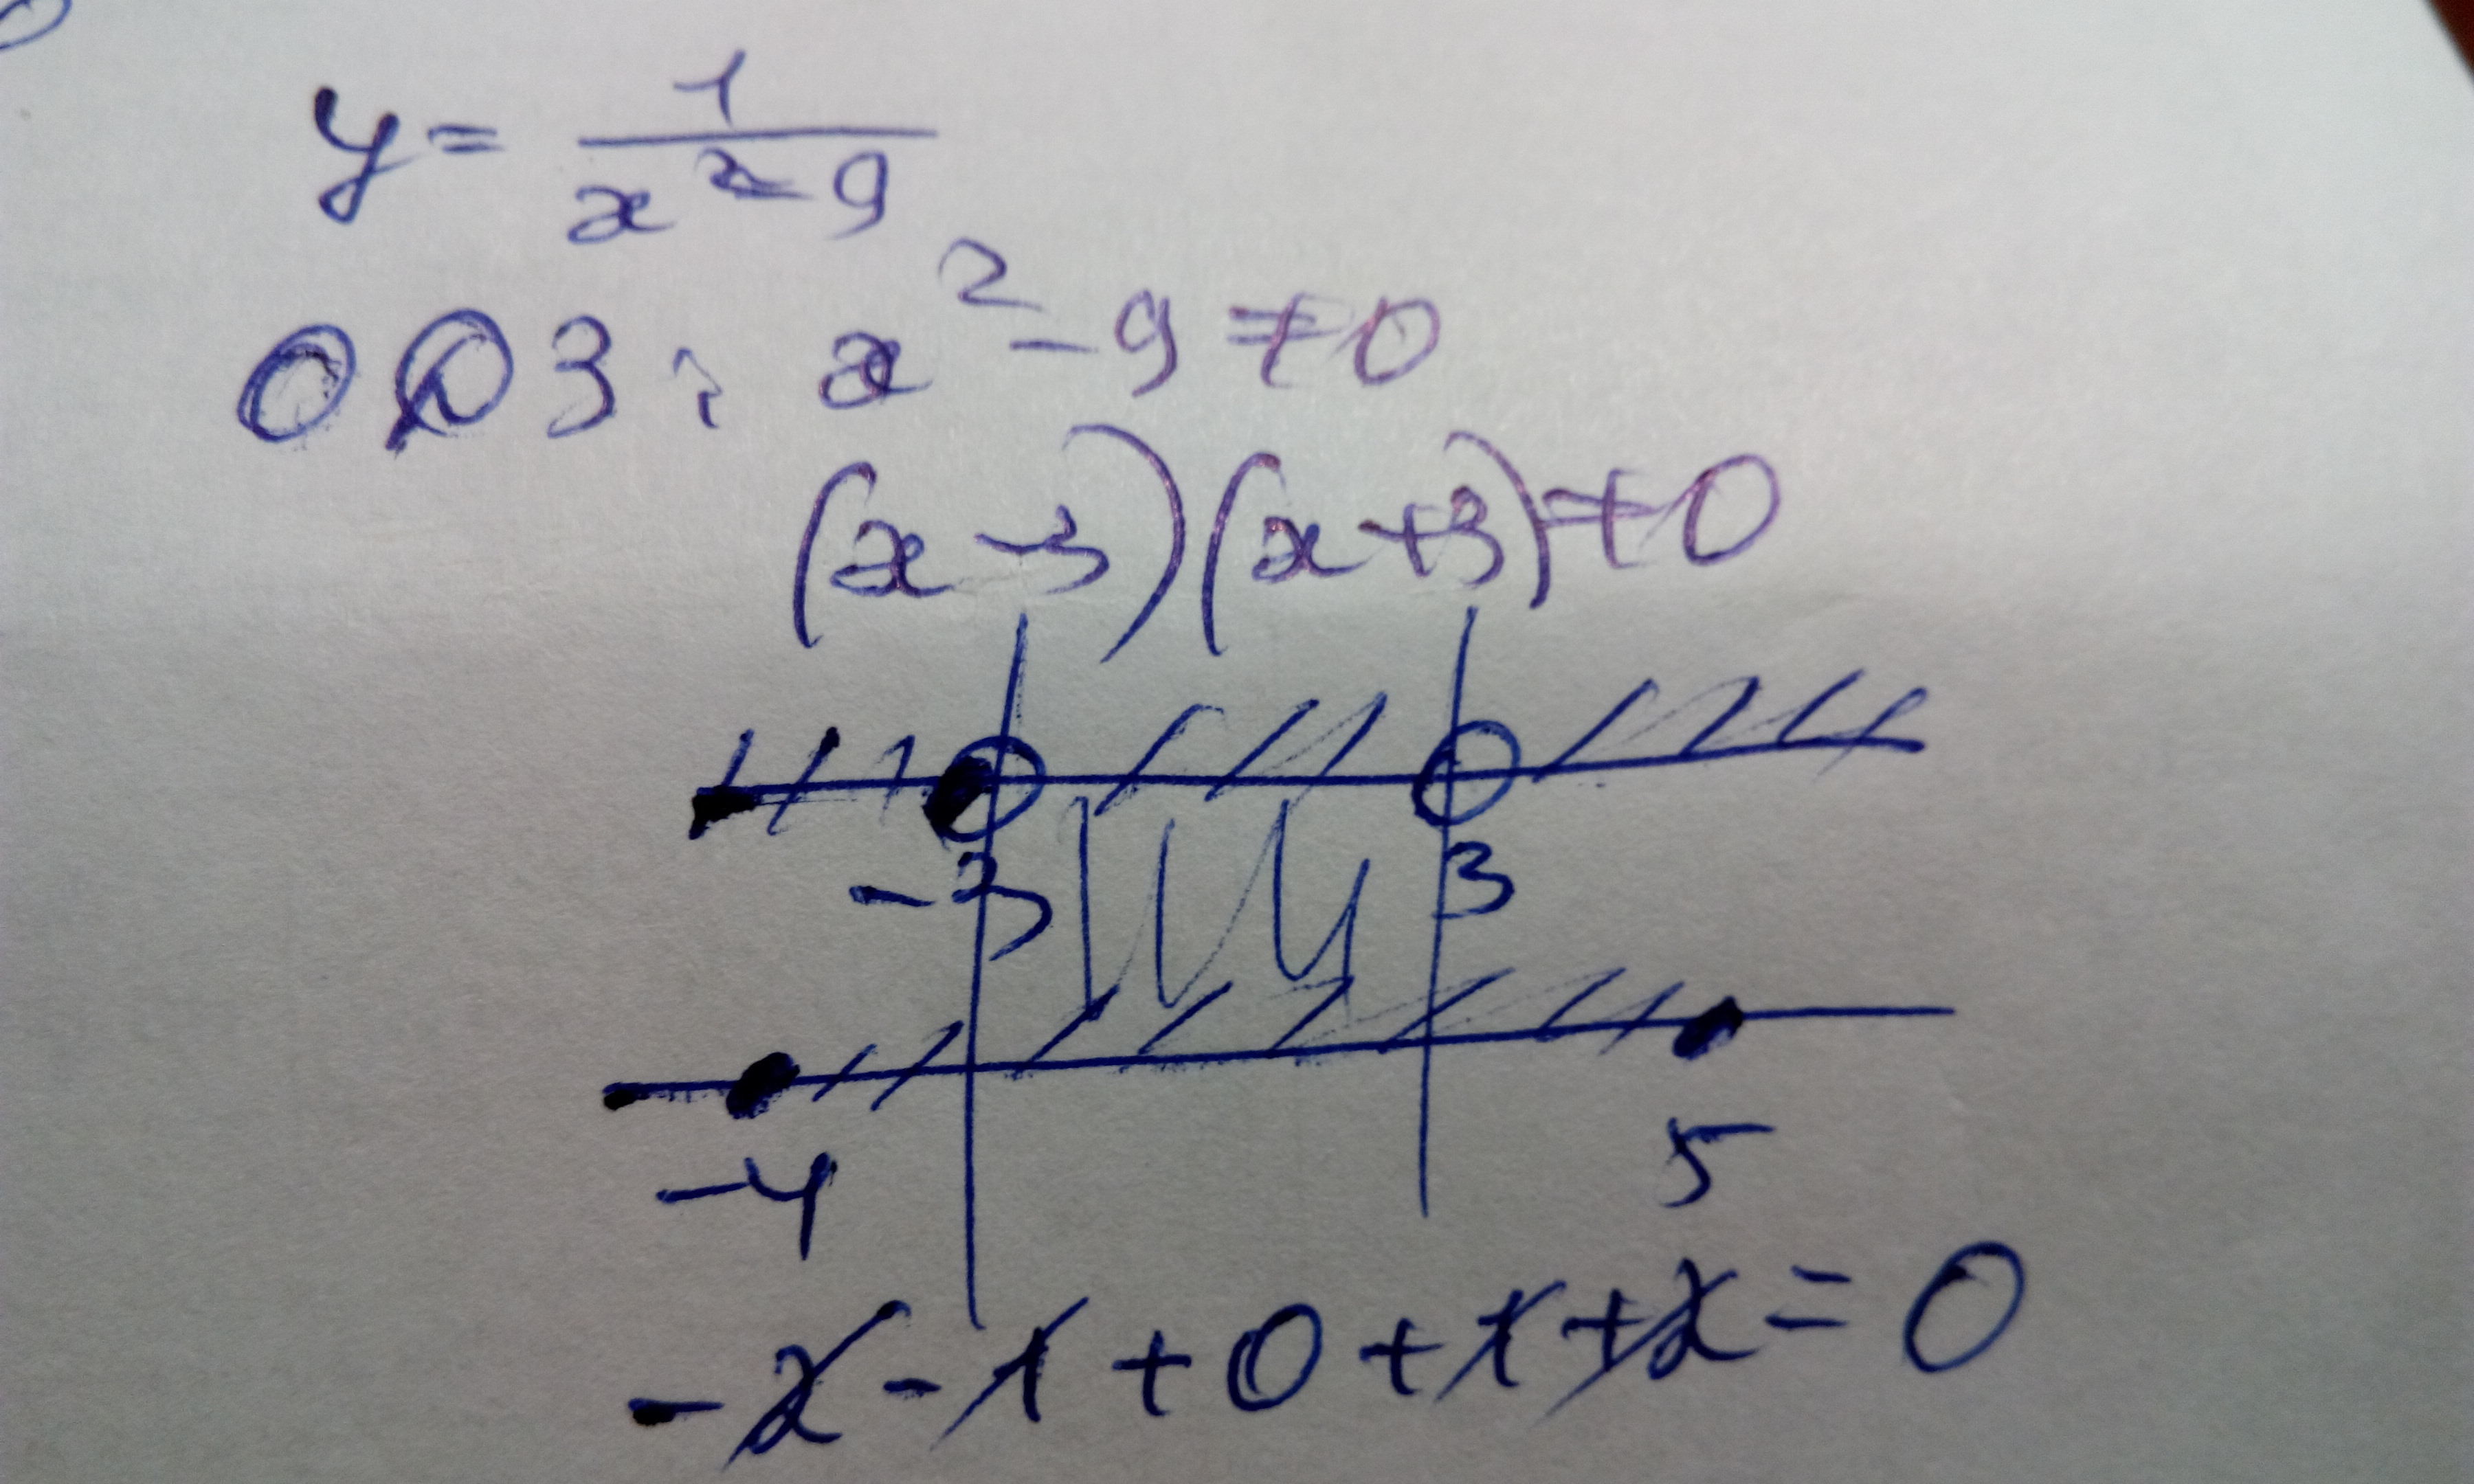 y = 1/(x² - 9)
ОДЗ: x² - 9 ≠ 0
(x - 3)(x + 3) ≠ 0
-3 3
-4 5
-2 - 1 + 0 + 1 + 2 = 0